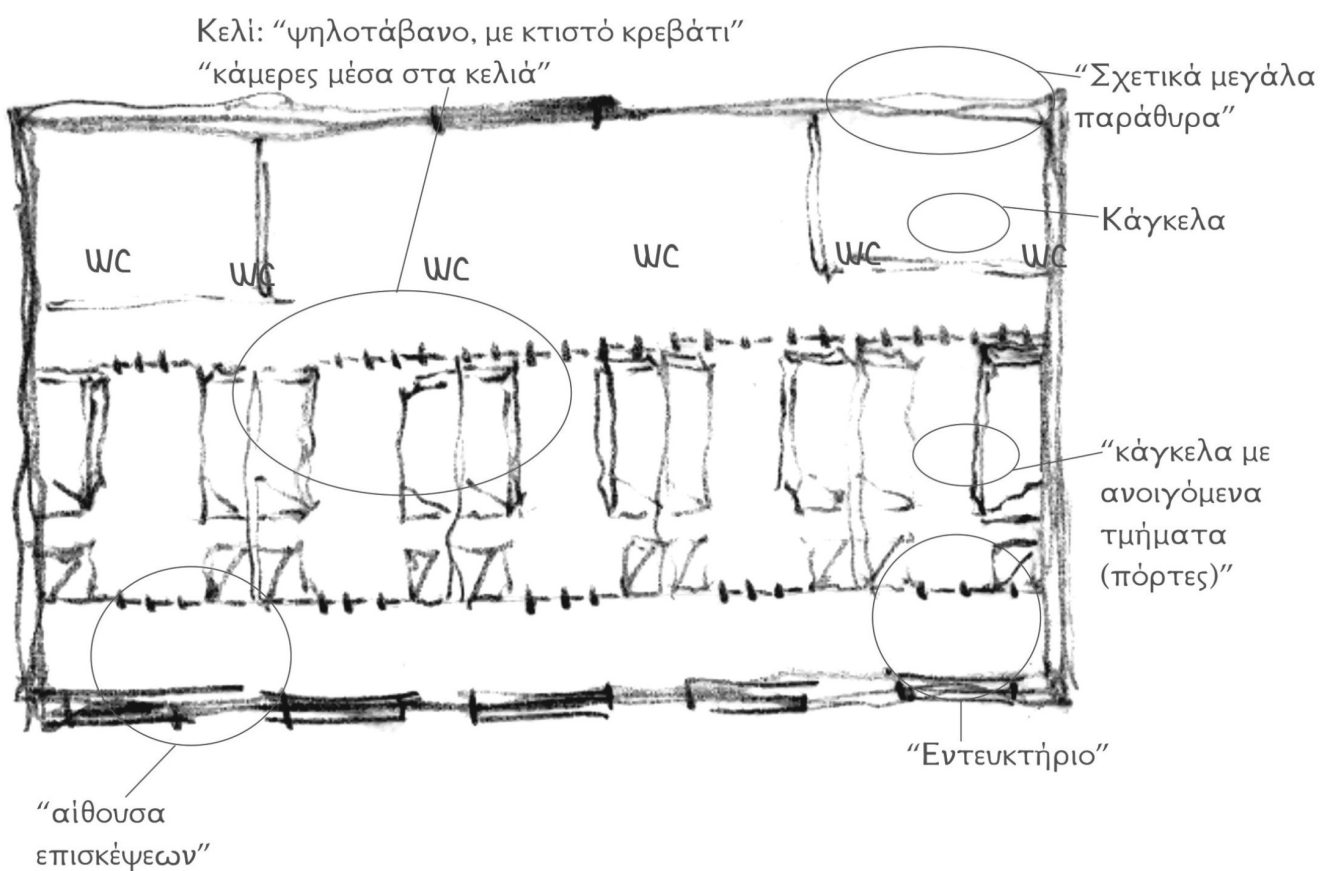 Κελί: “ψηλοτάβανο, με κτιστό κρεβάτι”
“κάμερες μέσα στα κελιά”
“Σχετικά μεγάλα
παράθυρα”
Κάγκελα
WC
WC
WC
WC
WC
WC
“κάγκελα με
ανοιγόμενα
τμήματα
(πόρτες)”
“Εντευκτήριο”
“αίθουσα
επισκέψεων”